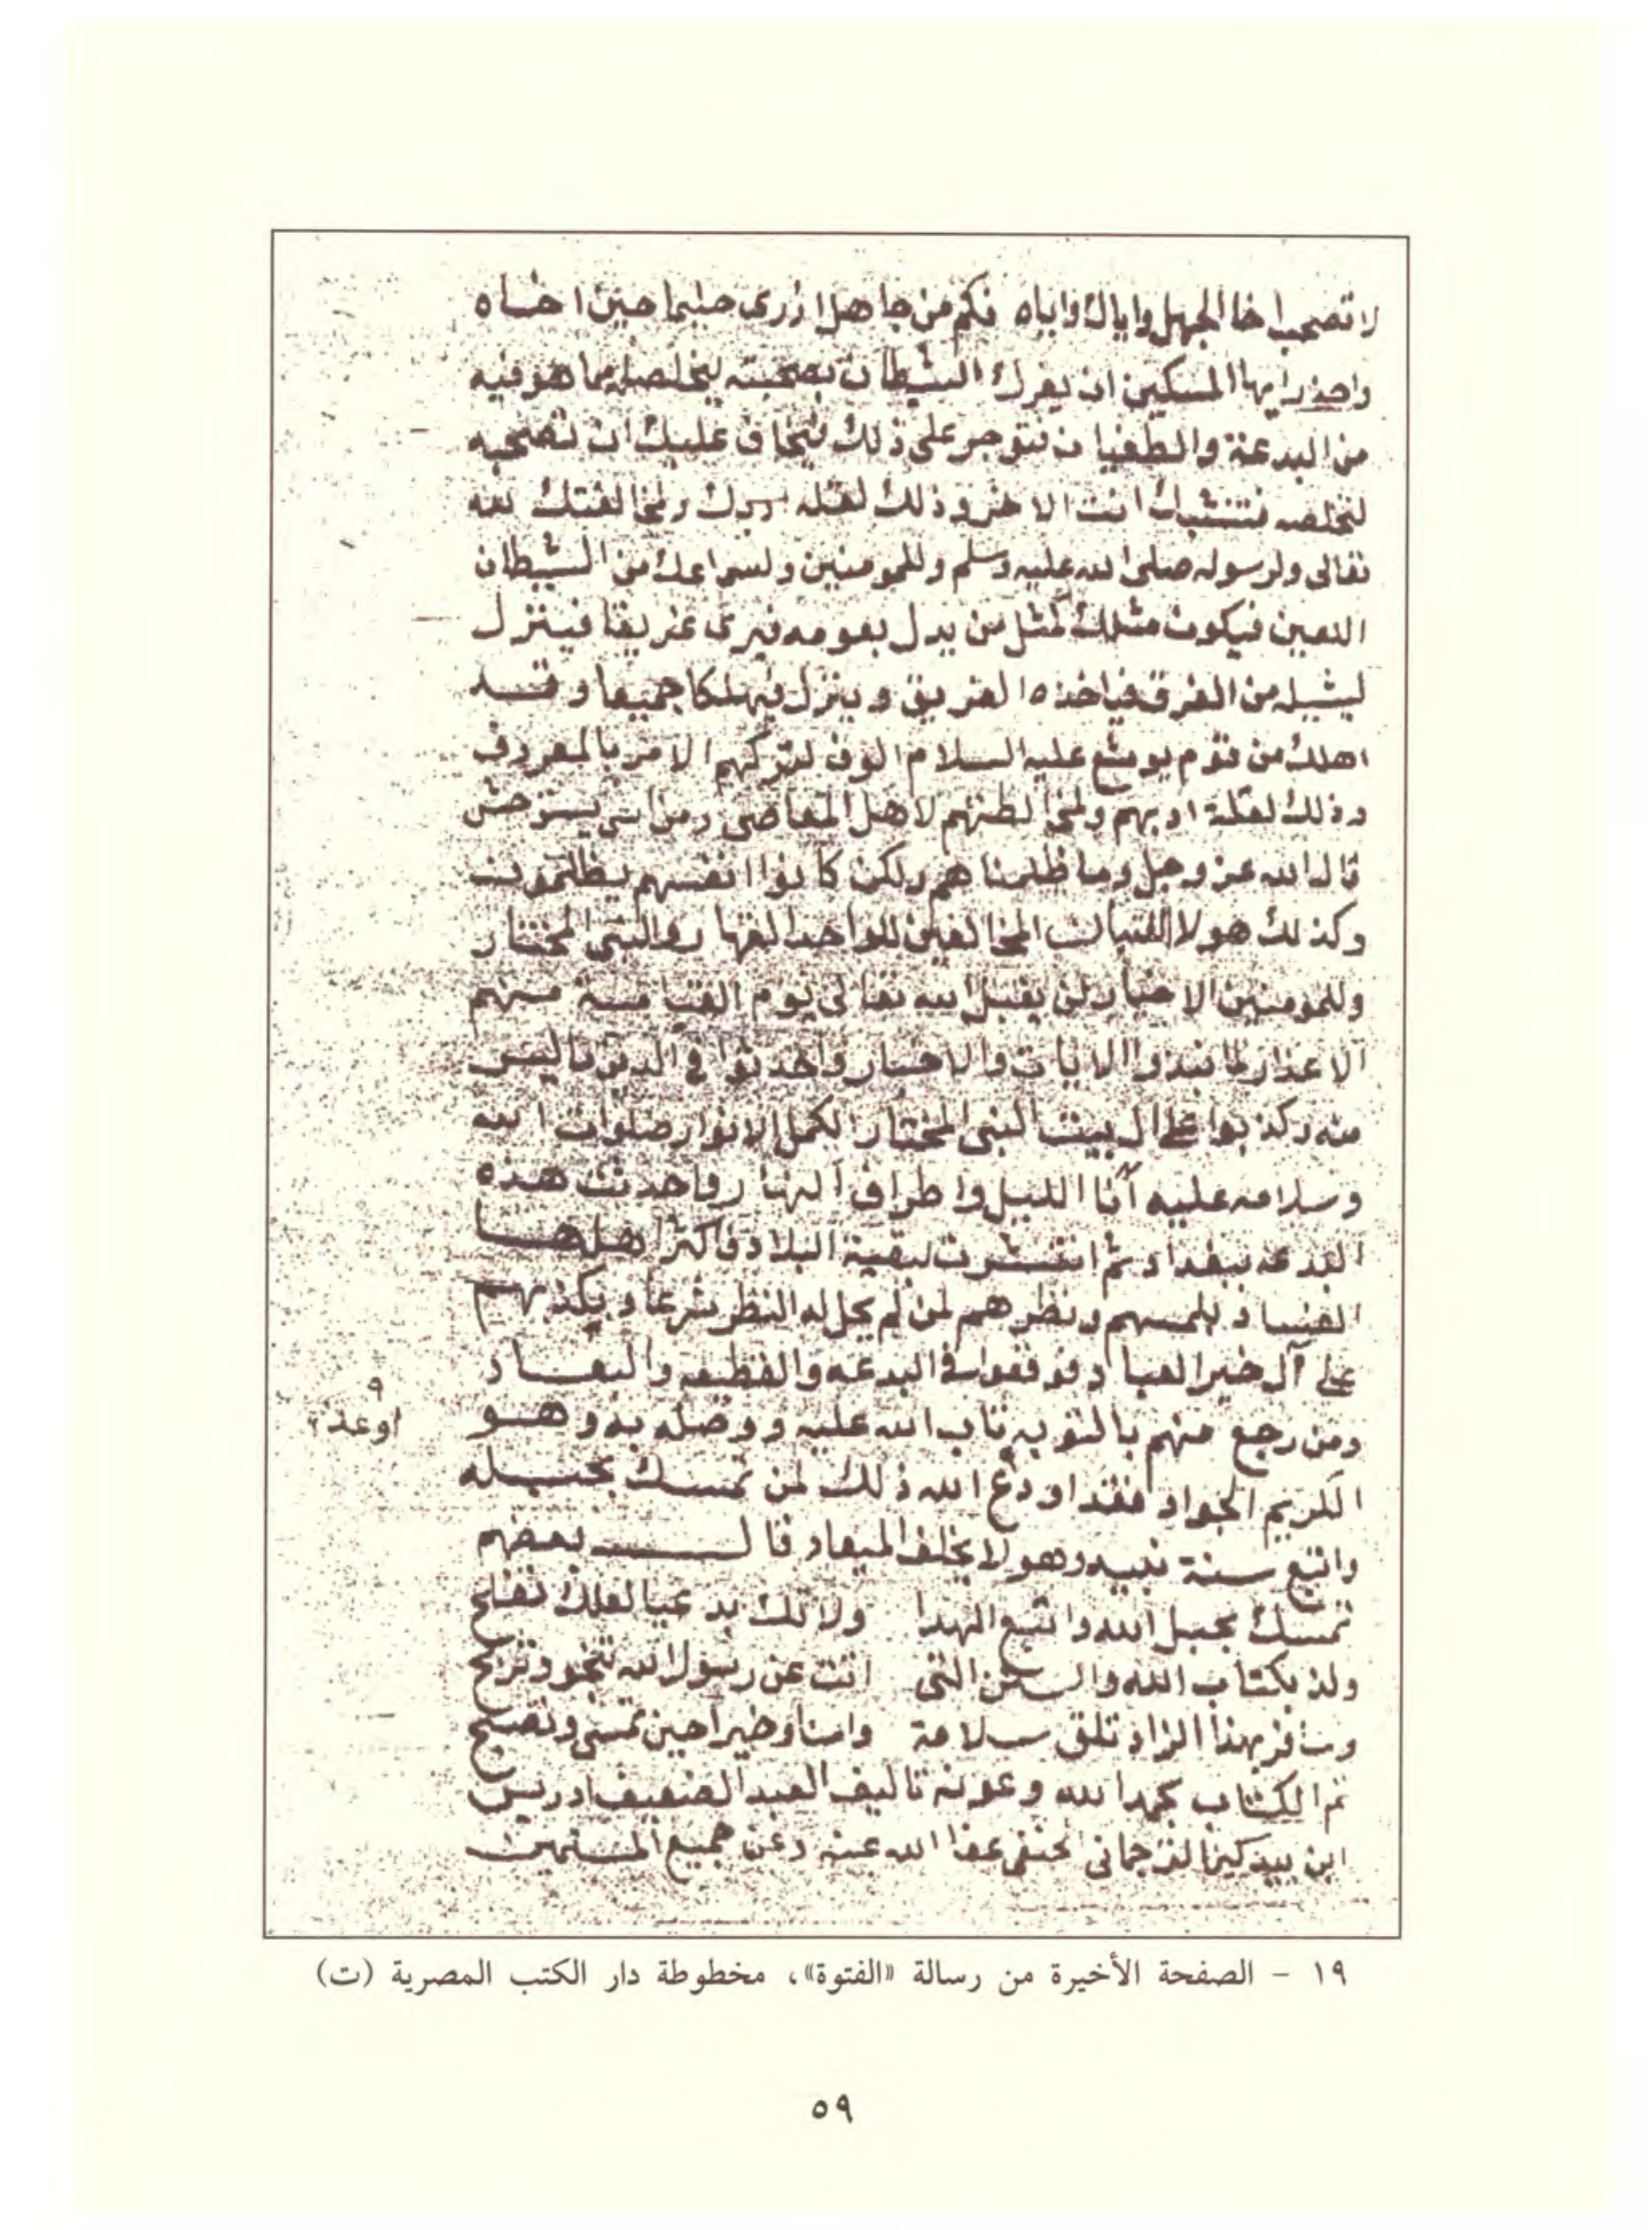 لا تصحب اخا الجهل واياك واياه فكم من جاهل اردى حليما حين اخاه
واحذر ايها المسكين ان يغرك الشيطان بصحبته لتخلصه مما هو فيه
من البدعة والطغيان فتوجر على ذلك فيخاف عليك ان تصحبه
لتخلصه فتنشبك انت الاخر وذلك لقلة ولمخالفتك لله
تعالى ولرسوله صلى الله عليه وسلم وللمومنين ولسماعك من الشيطان
اللعين فيكون مثلك كمثل من يدل بعومه فيرى غريقا فينزل
ليشيله من الغرق فياخذه الغريق وينزل فيهلكا جميعا وقد
اهلك من قوم يوشع عليه السلام الوف لتركهم الامر بالمعروف
وذلك لقلة ادبهم ولمخالطتهم لاهل المعاصي ومن يستوحش
قال الله عز وجل وما ظلمناهم ولكن كانوا انفسهم يظلمون
وكذلك هولا الفتيان المخالفين للواحد القهار والنبي المختار
وللمومنين الاخيار لن يقبل الله تعالى يوم القيامة منهم
الاعذار لما نبذوا الايات والاخبار واحدثوا في الدين ما ليس
منه وكذبوا على ال بيت النبي المختار الكمل الانوار صلوات الله
وسلامه عليه آنا الليل واطراف النهار واحدثت هذه
البدعه ببغداد ثم انتشرت لبقية البلاد فاكثر اهلها
الفساد بلمسهم ونظرهم لمن لم يحل له النظر شرعا وبكذبهم
على آل خير العباد فوقفوا في البدعه والقطيعه والبعاد
ومن رجع منهم بالتوبه تاب الله عليه ووصله به وهو
الكريم الجواد فقد اودع الله ذلك لمن تمسك بحبله
اوعد؟
واتبع سنة نبيه وهو لا يخلف الميعاد قال بعضهم
تمسك بحبل الله واتبع الهدا ولا تك بدعيا لعلك تفلح
ولذ بكتاب الله والسنن التي اتت عن رسول الله تنجو وتربح
وسافر بهذا الزاد تلق سلامة وامنا وخيرا حين تمسي وتصبح
تم الكتاب بحمد الله وعونه تاليف العبد الضعيف ادريس
ابن بيدكين التركماني الحنفي عفا الله عنه وعن جميع المسلمين
١٩ - الصفحة الأخيرة من رسالة «الفتوة»، مخطوطة دار الكتب المصرية (ت)
٥٩